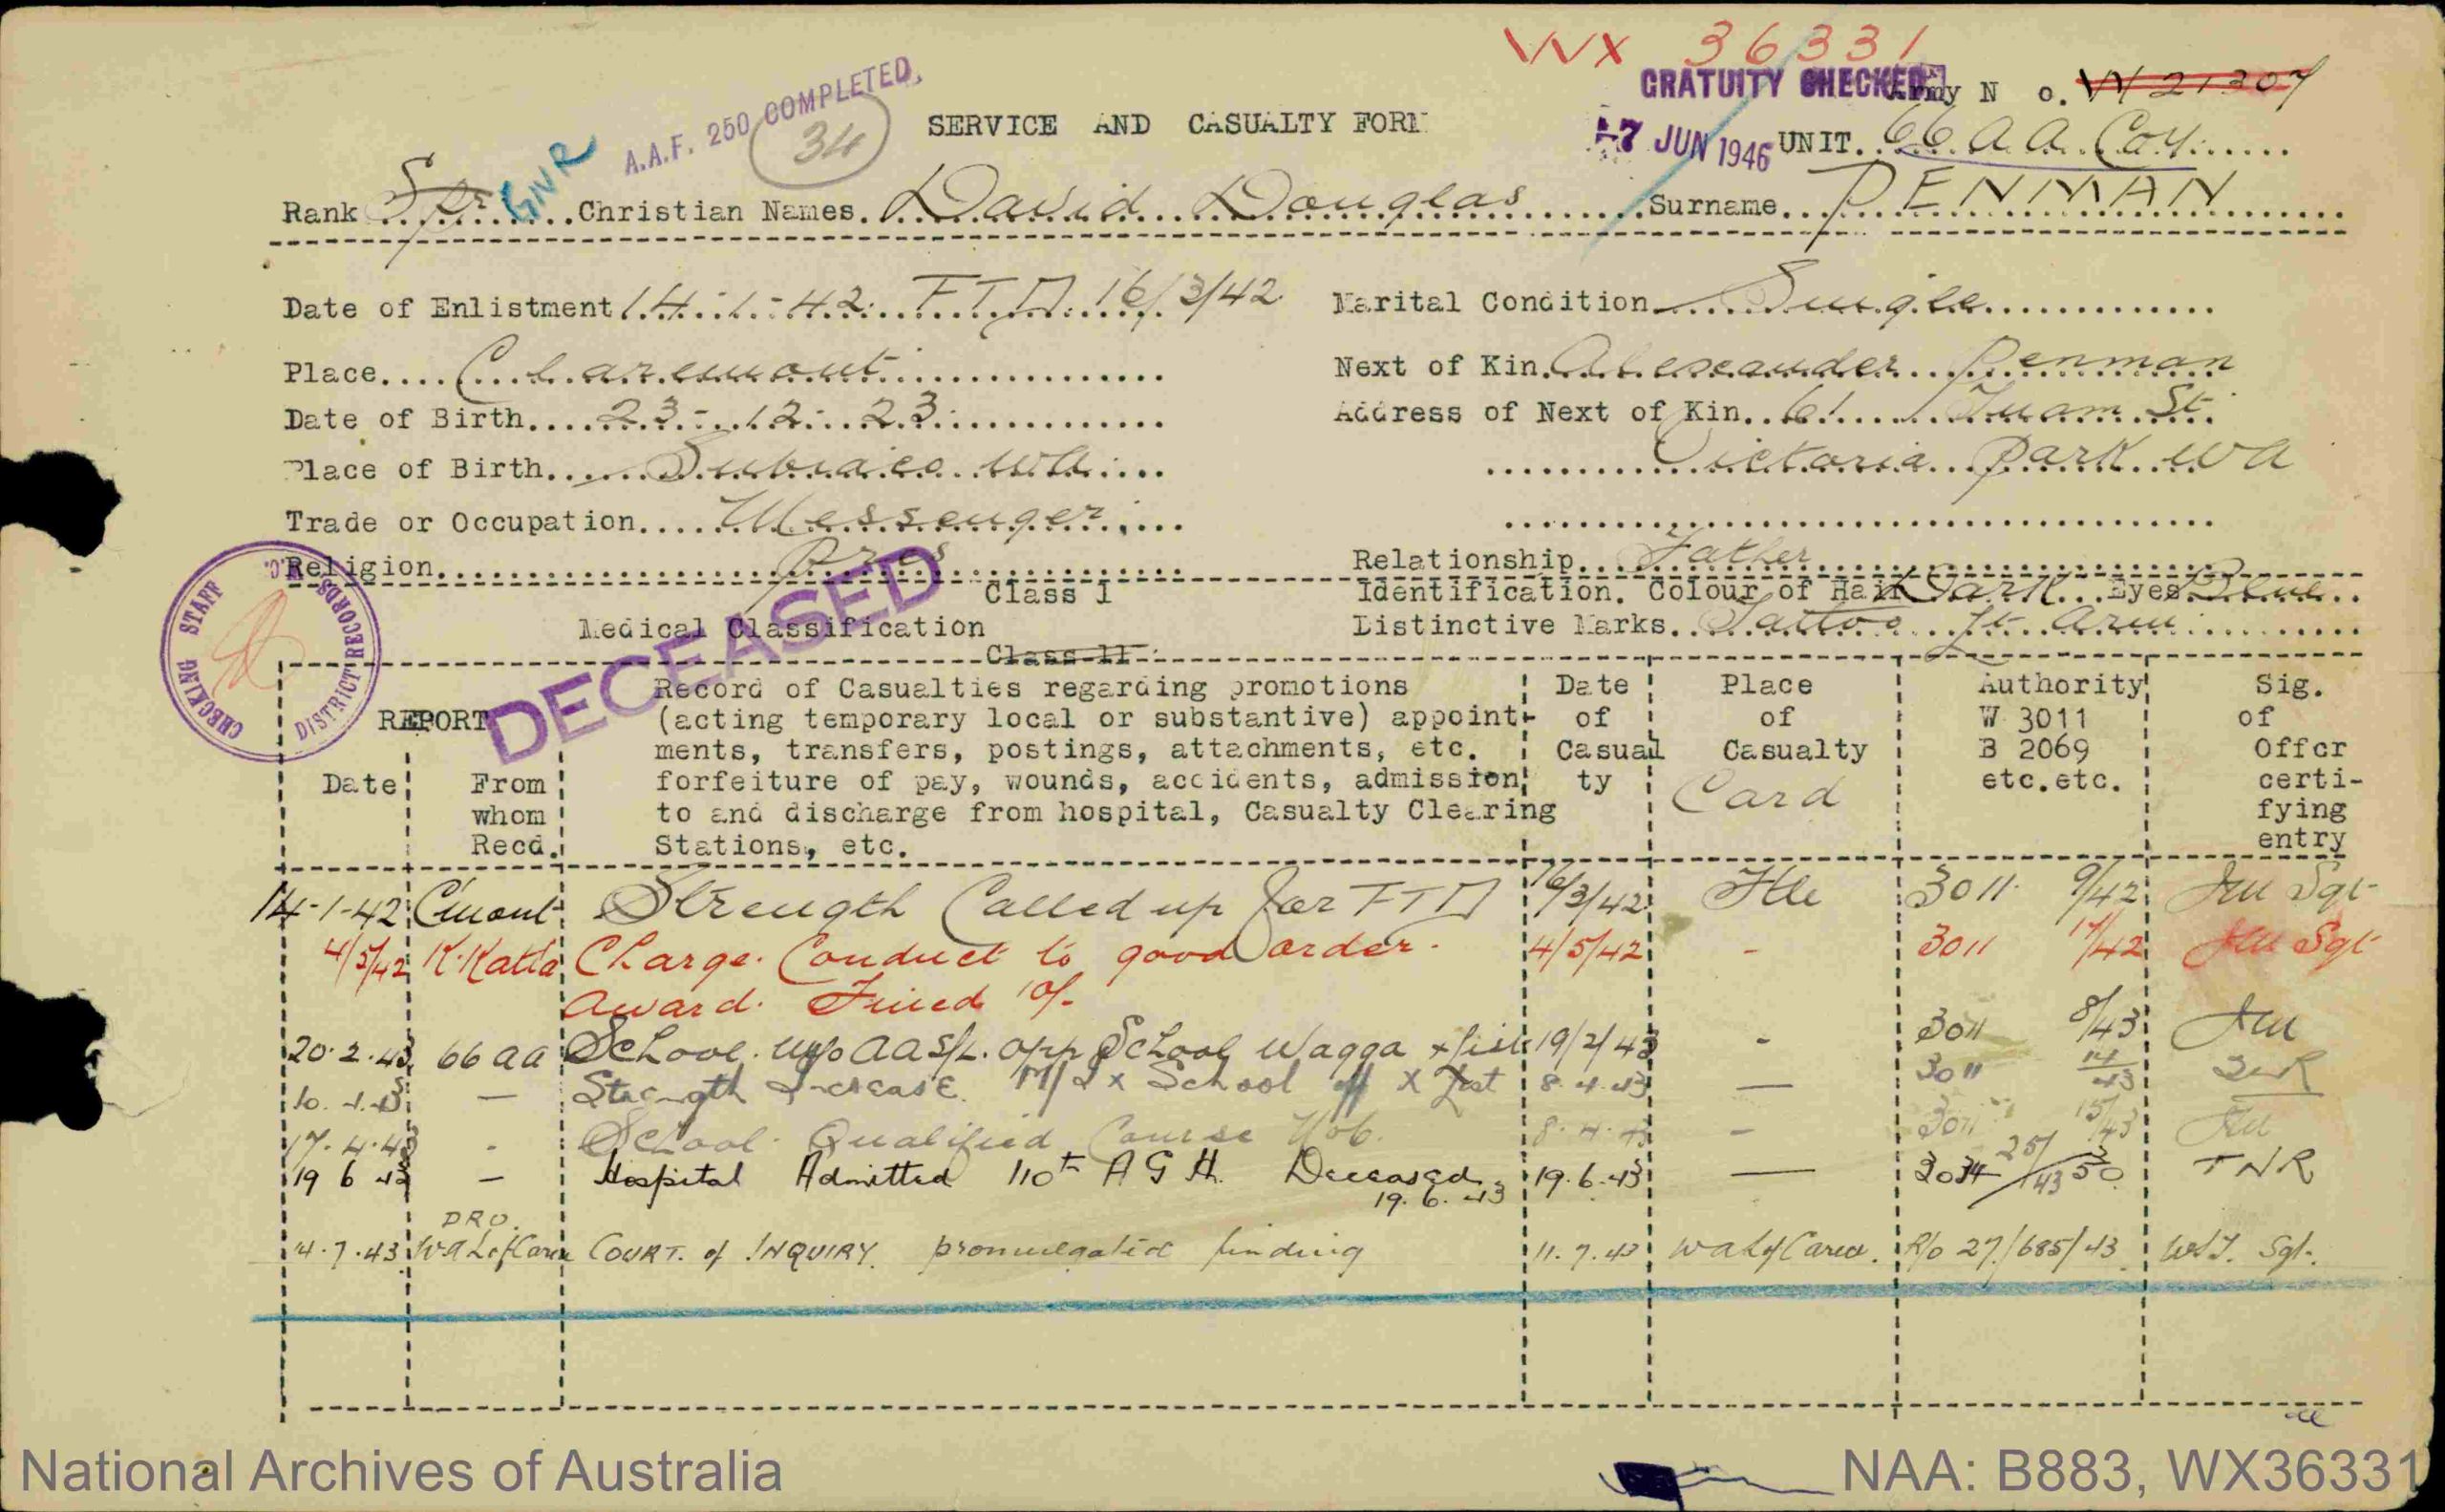 WX 36331
GRATUITY CHECKED Army N o. W 21307
A.A.F. 250 COMPLETED.
34
SERVICE AND CASUALTY FORM
-7 JUN 1946 UNIT. 66 A A Coy
Rank Spr GIVR Christian Names. David Douglas Surname. PENMAN
Date of Enlistment 14-1-42. F T D. 16/3/42 Marital Condition Single
Place Claremont Next of Kin. Alexander Penman
Date of Birth 23-12-23. Address of Next of Kin. 61 Tuam St.
Place of Birth Subiaco WA Victoria Park WA
Trade or Occupation Messenger
Religion Pres Relationship. Father
DECEASED
CHECKING STAFF DISTRICT RECORDS
Class I Identification. Colour of Hair Dark Eyes Blue
Medical Classification Distinctive Marks. Tattoo Lt arm
Class 11
REPORT Record of Casualties regarding promotions Date Place Authority Sig.
(acting temporary local or substantive) appoint- of of W 3011 of
ments, transfers, postings, attachments, etc. Casual Casualty B 2069 Offcr
Date From forfeiture of pay, wounds, accidents, admission ty Card etc.etc. certi-
whom to and discharge from hospital, Casualty Clearing fying
Recd. Stations, etc. entry
14-1-42 C'mont Strength Called up for F T D 16/3/42 Ftle 3011 9/42 Sgt
4/5/42 K.Katta Charge. Conduct to good order. 4/5/42 - 3011 17/42 Sgt
Award. Fined 10/-
20.2.43 66 AA School. AASL. School Wagga x list 19/2/43 - 3011 8/43
10.4.43 — Strength Increase. M/I x School X List 8.4.43 — 3011 14/43
17.4.43 - School. Qualified Course 8.4.43 - 3011 15/43
19 6 43 — Hospital Admitted 110th A G H. Deceased 19.6.43 19.6.43 — 2034 25/43 50 TNR
DRO.
14.7.43 W.A. L of C area COURT. of INQUIRY. promulgated finding 11.7.43 WA L of C area. R/o 27/685/43 Sgt.
National Archives of Australia NAA: B883, WX36331